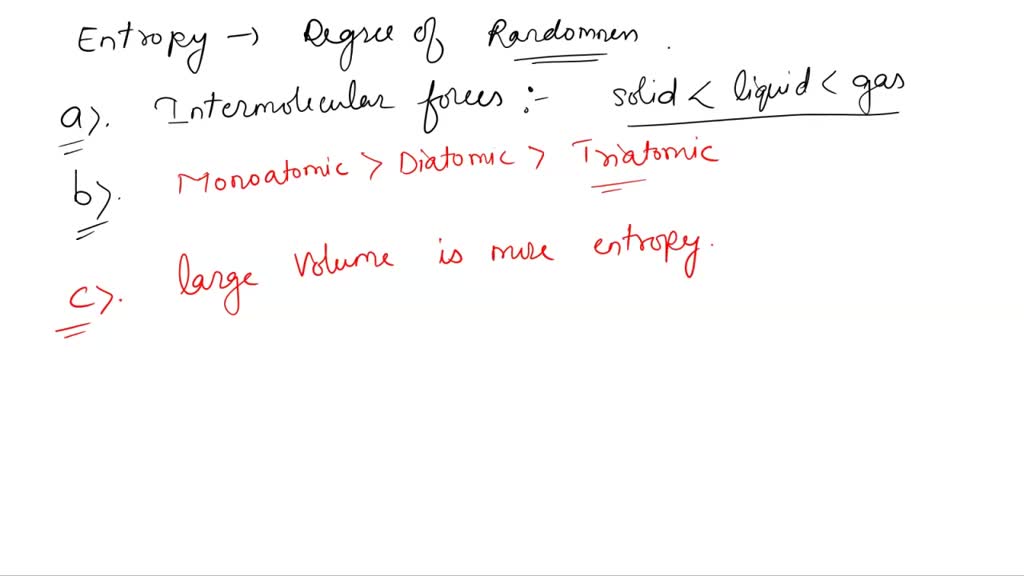 Entropy → Degree of Randomnen.
a). Intermolecular forces :- solid < liquid < gas
b). Monoatomic > Diatomic > Triatomic
c). large volume is more entropy.